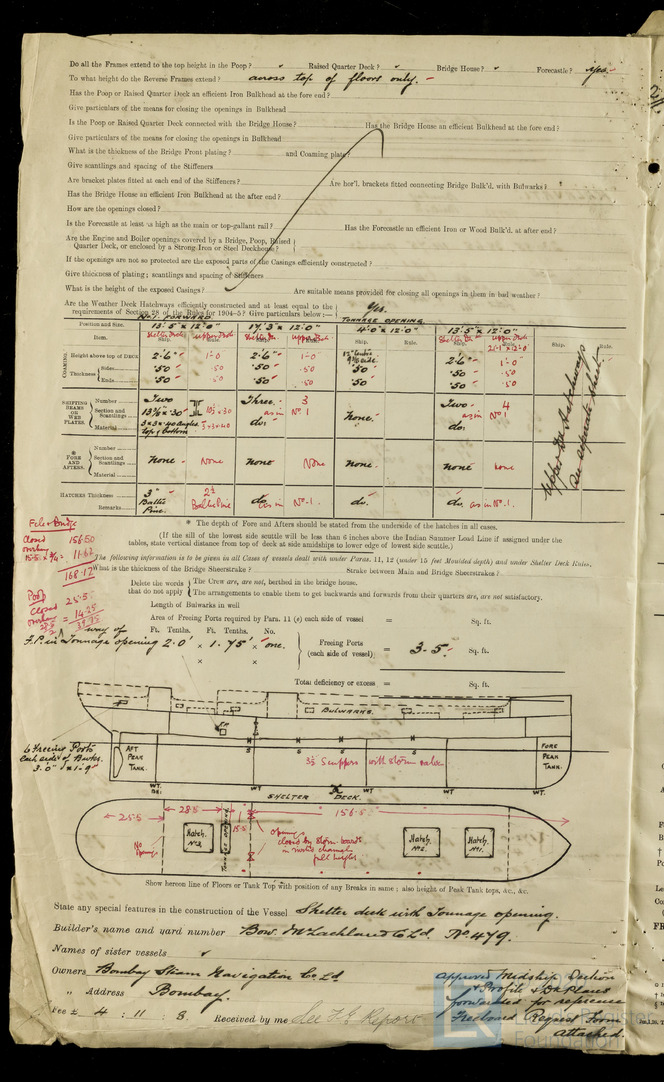 Do all the Frames extend to the top height in the Poop? Raised Quarter Deck? Bridge House? Forecastle? Yes.
To what height do the Reverse Frames extend? across top of floors only.
Has the Poop or Raised Quarter Deck an efficient Iron Bulkhead at the fore end?
Give particulars of the means for closing the openings in Bulkhead
Is the Poop or Raised Quarter Deck connected with the Bridge House? Has the Bridge House an efficient Bulkhead at the fore end?
Give particulars of the means for closing the openings in Bulkhead
What is the thickness of the Bridge Front plating? and Coaming plate?
Give scantlings and spacing of the Stiffeners
Are bracket plates fitted at each end of the Stiffeners? Are hor'l. brackets fitted connecting Bridge Bulk'd. with Bulwarks?
Has the Bridge House an efficient Iron Bulkhead at the after end?
How are the openings closed?
Is the Forecastle at least as high as the main or top-gallant rail? Has the Forecastle an efficient Iron or Wood Bulk'd. at after end?
Are the Engine and Boiler openings covered by a Bridge, Poop, Raised
Quarter Deck, or enclosed by a Strong Iron or Steel Deckhouse?
If the openings are not so protected are the exposed parts of the Casings efficiently constructed?
Give thickness of plating; scantlings and spacing of Stiffeners
What is the height of the exposed Casings? Are suitable means provided for closing all openings in them in bad weather?
Are the Weather Deck Hatchways efficiently constructed and at least equal to the
requirements of Section 28 of the Rules for 1904-5? Give particulars below:— Yes.
No. 1. FORWARD TONNAGE OPENING
Position and Size. 13'.5" x 12'.0" 17'.3" x 12'.0" 4'.0" x 12'.0" 13'.5" x 12'.0"
Item. Shelter Deck Ship. Upper Deck Rule. Shelter Dk. Ship. Upper Deck Rule. Ship. Rule. Shelter Dk Ship. Upper Deck Rule. Ship. Rule.
COAMING. Height above top of DECK 2'.6" 1'-0 2'.6" 1'-0 2'.6" 1'-0
Thickness Sides .50 .50 .50 .50 .50 .50 .50
Ends .50 .50 .50 .50 .50 .50 .50
SHIPPING BEAMS OR WEB PLATES. Number Two Three. 3 None. Two 4
Section and Scantlings as in No 1 as in No 1.
Material 3 x 3 x .40 angles top & bottom do. do.
* FORE AND AFTERS. Number
Section and Scantlings None None None None None. None none
Material
HATCHES Thickness 3" 2½
Remarks Baltic Pine. Baltic Pine do. as in No-1. do. do. as in No. 1.
Upper Dk Hatchways on separate sheet.
* The depth of Fore and Afters should be stated from the underside of the hatches in all cases.
(If the sill of the lowest side scuttle will be less than 6 inches above the Indian Summer Load Line if assigned under the
tables, state vertical distance from top of deck at side amidships to lower edge of lowest side scuttle.)
Fcle & Bridge
Closed 156.50
overhang
15.5 x ¾ = 11.62
168.12
The following information is to be given in all Cases of vessels dealt with under Paras. 11, 12 (under 15 feet Moulded depth) and under Shelter Deck Rules.
What is the thickness of the Bridge Sheerstrake? Strake between Main and Bridge Sheerstrakes?
Delete the words that do not apply
The Crew are, are not, berthed in the bridge house.
The arrangements to enable them to get backwards and forwards from their quarters are, are not satisfactory.
Poop
Closed 25.5
overhang 28.5/2 = 14.25
39.75
Length of Bulwarks in well
Area of Freeing Ports required by Para. 11 (e) each side of vessel = Sq. ft.
Ft. Tenths. Ft. Tenths. No.
F.P. in way of Tonnage opening 2.0' x 1.75' x one.
Freeing Ports (each side of vessel) = 3.5 Sq. ft.
x x
Total deficiency or excess = Sq. ft.
BULWARKS.
6 Freeing Ports
each side of Bwks.
3'.0" x 1'-9"
AFT PEAK TANK.
S S S S
3½ Scuppers with storm valve
FORE PEAK TANK.
WT. WT WT. WT. WT.
SHELTER DECK.
25.5 28.5 15.5 156.5
No openings
Hatch. No 3.
TONNAGE OPENING
openings closed by storm boards in channels full height
Hatch. No 2.
Hatch. No 1.
Show hereon line of Floors or Tank Top with position of any Breaks in same; also height of Peak Tank tops, &c., &c.
State any special features in the construction of the Vessel Shelter deck with Tonnage opening.
Builder's name and yard number Bow. McLachlan & Co Ld No. 479.
Names of sister vessels
Owners Bombay Steam Navigation Co Ld
„ Address Bombay.
Fee £ 4 : 11 : 8. Received by me See F.E. Report
Approved Midship Section
& Profile & Dk Plans
forwarded for reference
Freeboard Request Form
attached.
Lloyd's Register
Foundation